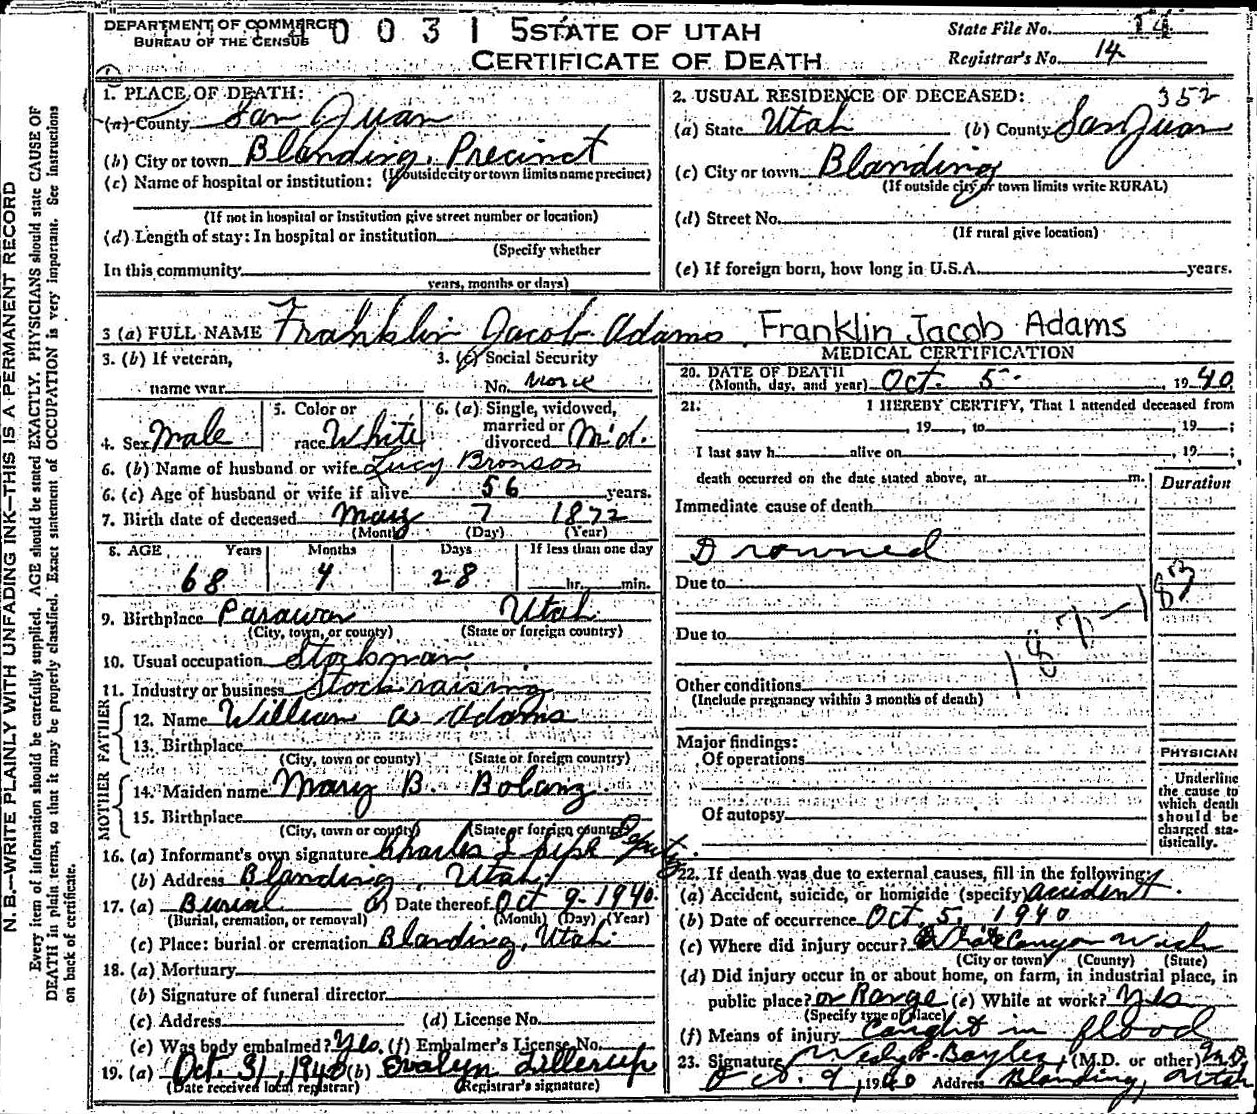 DEPARTMENT OF COMMERCE
BUREAU OF THE CENSUS
0 0 3 1 5
STATE OF UTAH
CERTIFICATE OF DEATH
State File No. 14
Registrar's No. 14
N. B.—WRITE PLAINLY WITH UNFADING INK—THIS IS A PERMANENT RECORD
Every item of information should be carefully supplied. AGE should be stated EXACTLY. PHYSICIANS should state CAUSE OF
DEATH in plain terms, so that it may be properly classified. Exact statement of OCCUPATION is very important. See instructions
on back of certificate.
1. PLACE OF DEATH:
(a) County San Juan
(b) City or town Blanding Precinct
(If outside city or town limits name precinct)
(c) Name of hospital or institution:
(If not in hospital or institution give street number or location)
(d) Length of stay: In hospital or institution
(Specify whether
In this community
years, months or days)
2. USUAL RESIDENCE OF DECEASED: 352
(a) State Utah (b) County San Juan
(c) City or town Blanding
(If outside city or town limits write RURAL)
(d) Street No.
(If rural give location)
(e) If foreign born, how long in U.S.A. years.
3 (a) FULL NAME Franklin Jacob Adams Franklin Jacob Adams
3. (b) If veteran,
name war
3. (c) Social Security
No. none
4. Sex Male
5. Color or
race White
6. (a) Single, widowed,
married or
divorced M'd.
6. (b) Name of husband or wife Lucy Bronson
6. (c) Age of husband or wife if alive 56 years.
7. Birth date of deceased May 7 1872
(Month) (Day) (Year)
8. AGE Years Months Days If less than one day
68 4 28 hr. min.
9. Birthplace Parawan Utah
(City, town, or county) (State or foreign country)
10. Usual occupation Stockman
11. Industry or business Stock raising
FATHER
12. Name William A Adams
13. Birthplace
(City, town or county) (State or foreign country)
MOTHER
14. Maiden name Mary B.
15. Birthplace
(City, town or county) (State or foreign country)
16. (a) Informant's own signature Charles Deputy
(b) Address Blanding, Utah
17. (a) Burial (b) Date thereof Oct 9-1940
(Burial, cremation, or removal) (Month) (Day) (Year)
(c) Place: burial or cremation Blanding, Utah
18. (a) Mortuary
(b) Signature of funeral director
(c) Address (d) License No.
(e) Was body embalmed? Yes. (f) Embalmer's License No.
19. (a) Oct. 31, 1940 (b) Evalyn Lillerup
(Date received local registrar) (Registrar's signature)
MEDICAL CERTIFICATION
20. DATE OF DEATH
(Month, day, and year) Oct. 5 - , 1940
21. I HEREBY CERTIFY, That I attended deceased from
, 19 , to , 19 ;
I last saw h alive on , 19 ;
death occurred on the date stated above, at m.
Duration
Immediate cause of death
Drowned
Due to
Due to
183
Other conditions
(Include pregnancy within 3 months of death)
Major findings:
Of operations
Of autopsy
PHYSICIAN
Underline
the cause to
which death
should be
charged sta-
tistically.
22. If death was due to external causes, fill in the following:
(a) Accident, suicide, or homicide (specify) accident.
(b) Date of occurrence Oct. 5. 1940
(c) Where did injury occur? Canyon Wash
(City or town) (County) (State)
(d) Did injury occur in or about home, on farm, in industrial place, in
public place? on Range (e) While at work? Yes
(Specify type of place)
(f) Means of injury Caught in flood
23. Signature Bayles, (M.D. or other) M.D.
Oct. 9, 1940 Address Blanding, Utah